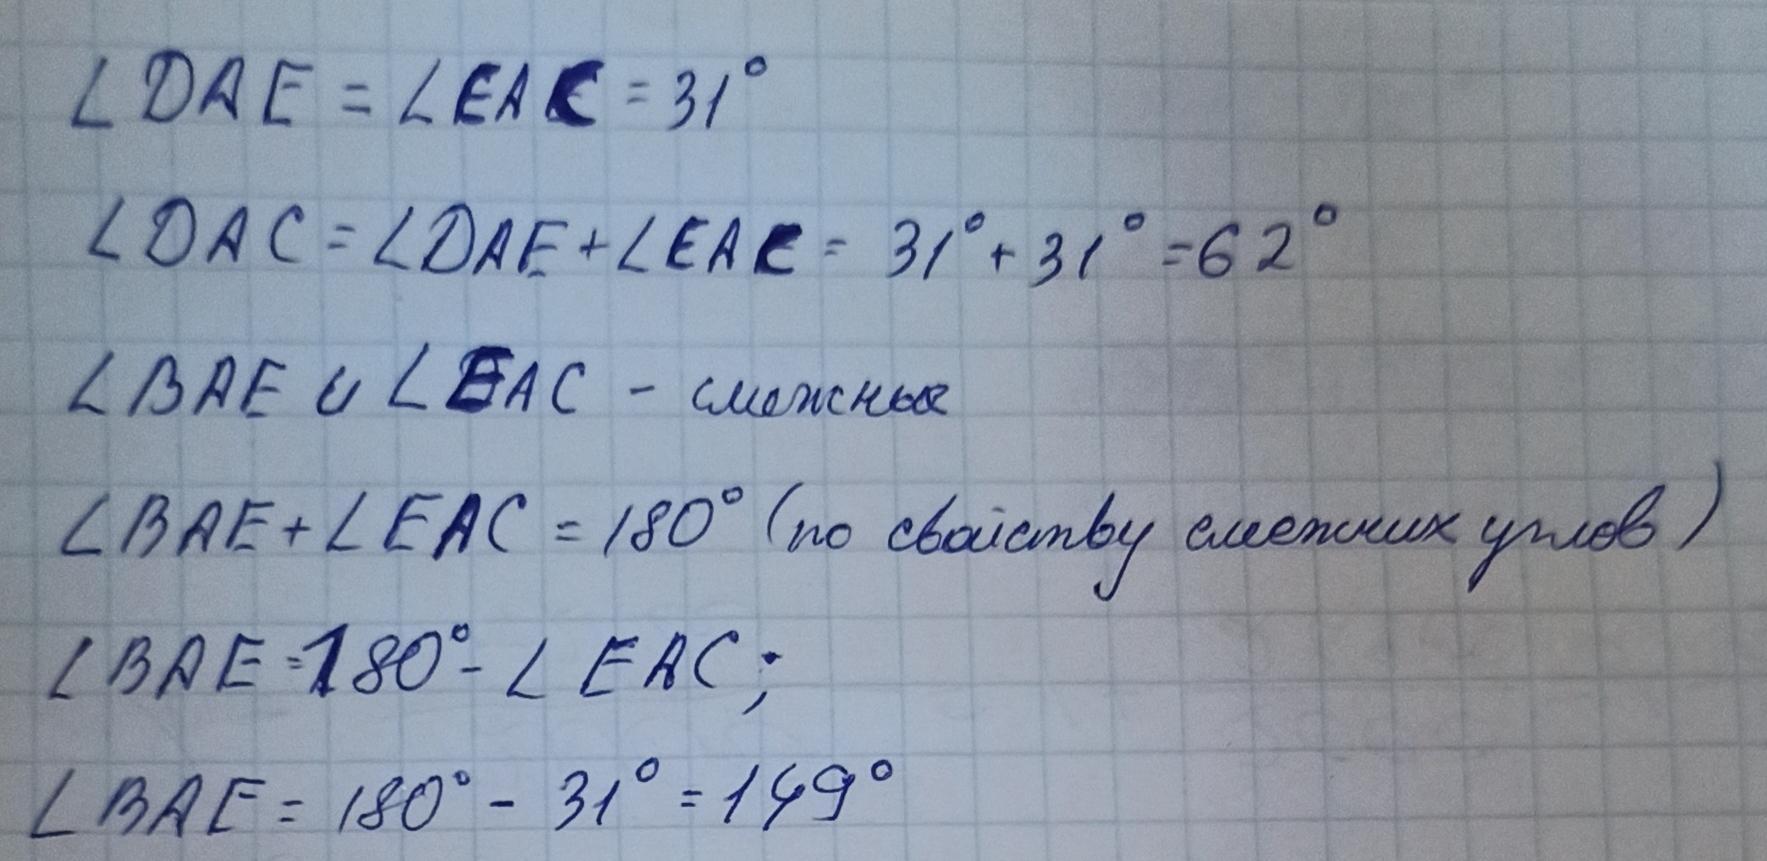 ∠DAE = ∠EAC = 31°
∠DAC = ∠DAE + ∠EAC = 31° + 31° = 62°
∠BAE и ∠EAC - смежные
∠BAE + ∠EAC = 180° (по свойству смежных углов)
∠BAE = 180° - ∠EAC;
∠BAE = 180° - 31° = 149°